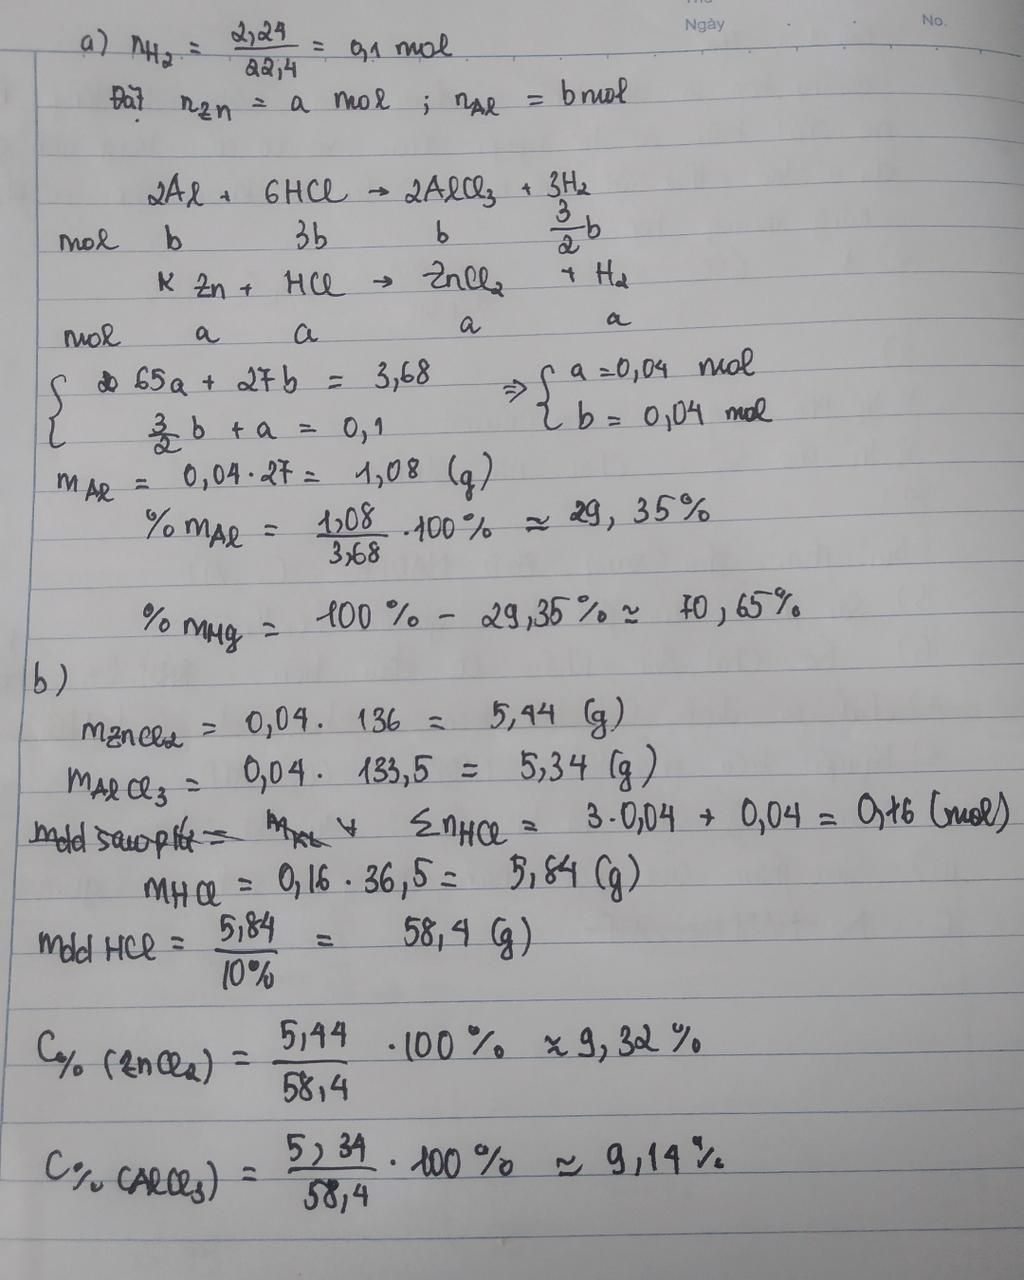 Thứ
Ngày . . No.
a) nH₂ = 2,24/22,4 = 0,1 mol
Đặt nZn = a mol ; nAl = b mol
2Al + 6HCl → 2AlCl₃ + 3H₂
mol b 3b b 3/2 b
Zn + HCl → ZnCl₂ + H₂
mol a a a a
{ 65a + 27b = 3,68 ⇒ { a = 0,04 mol
3/2 b + a = 0,1 b = 0,04 mol
mAl = 0,04 . 27 = 1,08 (g)
% mAl = 1,08/3,68 . 100% ≈ 29,35%
% mHg = 100% - 29,35% ≈ 70,65%
b)
mZnCl₂ = 0,04 . 136 = 5,44 (g)
mAlCl₃ = 0,04 . 133,5 = 5,34 (g)
ΣnHCl = 3.0,04 + 0,04 = 0,16 (mol)
mHCl = 0,16 . 36,5 = 5,84 (g)
mdd HCl = 5,84/10% = 58,4 (g)
C% (ZnCl₂) = 5,44/58,4 . 100% ≈ 9,32%
C% (AlCl₃) = 5,34/58,4 . 100% ≈ 9,14%